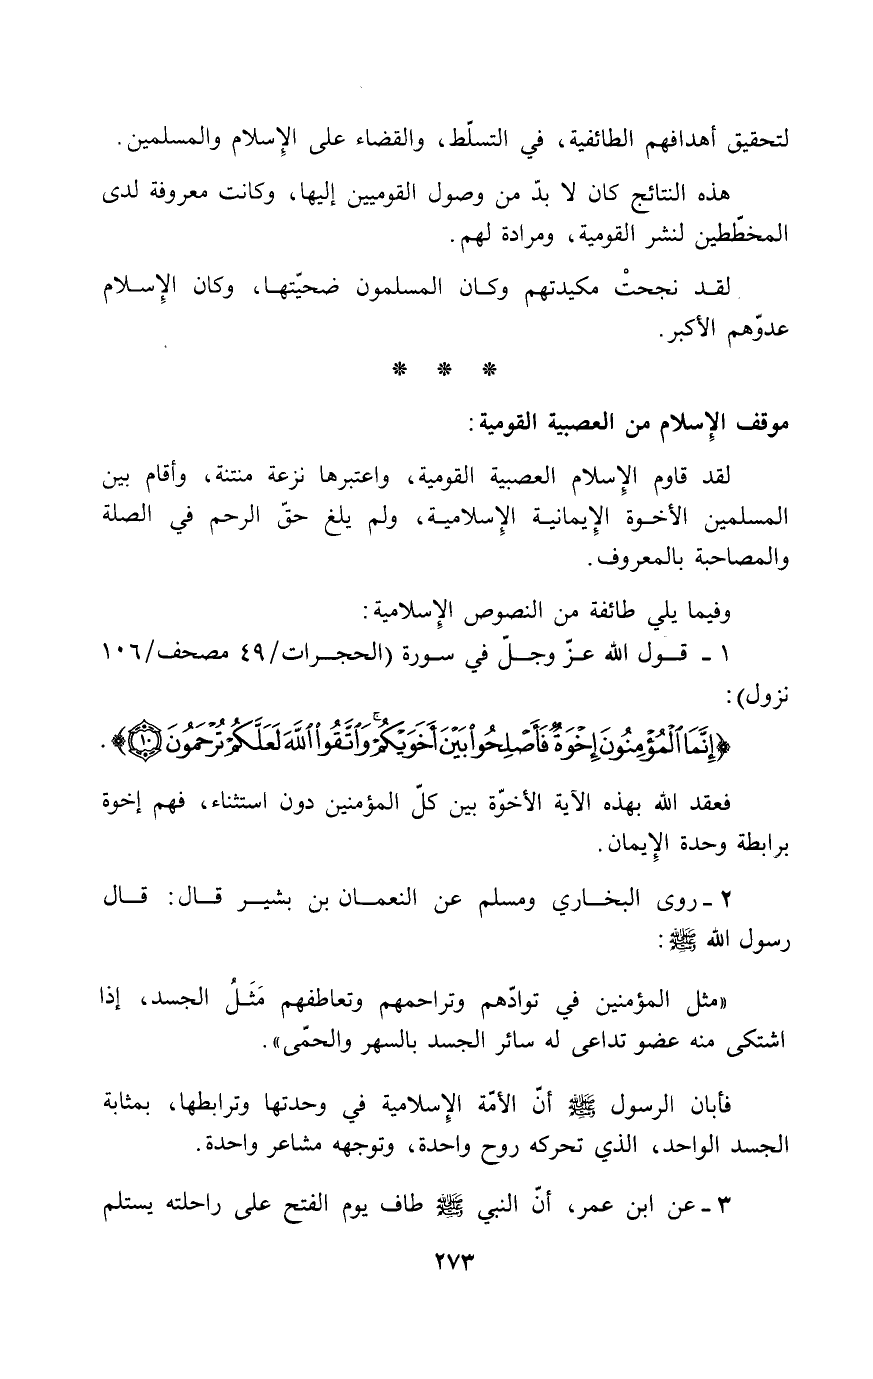 لتحقيق أهدافهم الطائفية، في التسلّط، والقضاء على الإِسلام والمسلمين.
هذه النتائج كان لا بدّ من وصول القوميين إليها، وكانت معروفة لدى
المخطّطين لنشر القومية، ومرادة لهم.
لقد نجحتْ مكيدتهم وكان المسلمون ضحيّتها، وكان الإِسلام
عدوّهم الأكبر.
* * *
موقف الإِسلام من العصبية القومية:
لقد قاوم الإِسلام العصبية القومية، واعتبرها نزعة منتنة، وأقام بين
المسلمين الأخوة الإِيمانية الإِسلامية، ولم يلغ حقّ الرحم في الصلة
والمصاحبة بالمعروف.
وفيما يلي طائفة من النصوص الإِسلامية:
١ - قول الله عزّ وجلّ في سورة (الحجرات/٤٩ مصحف/١٠٦
نزول):
﴿إِنَّمَا ٱلْمُؤْمِنُونَ إِخْوَةٌ فَأَصْلِحُوا۟ بَيْنَ أَخَوَيْكُمْ ۚ وَٱتَّقُوا۟ ٱللَّهَ لَعَلَّكُمْ تُرْحَمُونَ ١٠﴾.
فعقد الله بهذه الآية الأخوّة بين كلّ المؤمنين دون استثناء، فهم إخوة
برابطة وحدة الإِيمان.
٢ - روى البخاري ومسلم عن النعمان بن بشير قال: قال
رسول الله ﷺ:
«مثل المؤمنين في توادّهم وتراحمهم وتعاطفهم مَثَلُ الجسد، إذا
اشتكى منه عضو تداعى له سائر الجسد بالسهر والحمّى».
فأبان الرسول ﷺ أنّ الأمّة الإِسلامية في وحدتها وترابطها، بمثابة
الجسد الواحد، الذي تحركه روح واحدة، وتوجهه مشاعر واحدة.
٣ - عن ابن عمر، أنّ النبي ﷺ طاف يوم الفتح على راحلته يستلم
٢٧٣